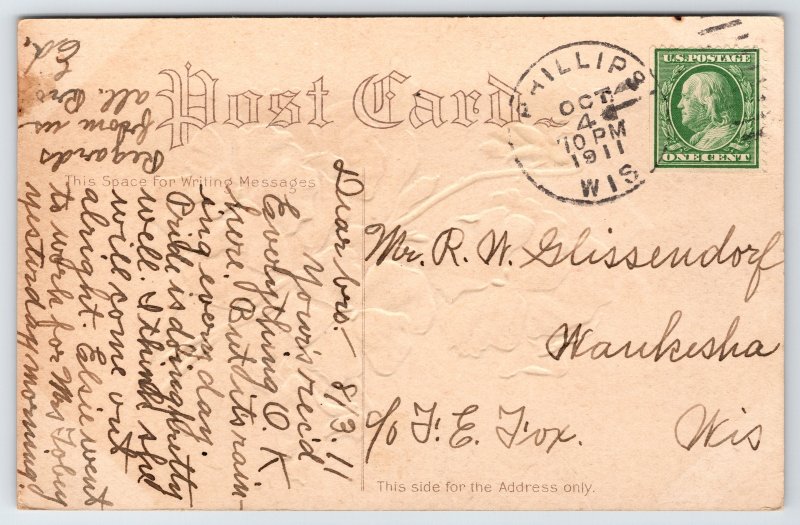 Post Card
This Space For Writing Messages
This side for the Address only.
PHILLIPS
OCT
4
10 PM
1911
WIS
U.S. POSTAGE
ONE CENT
Mr. R. W. Glissendorf
Waukesha
Wis
c/o F. E. Fox.
Dear bro.- 8/3. 11
Your's rec'd
Everything O. K
here. But its rain-
ing every day.
Pride is doing pretty
well. I think she
will come out
alright. Elsie went
to work for Mrs Tobey
yesterday morning!
Regards
from us
all. Bro
Ed.